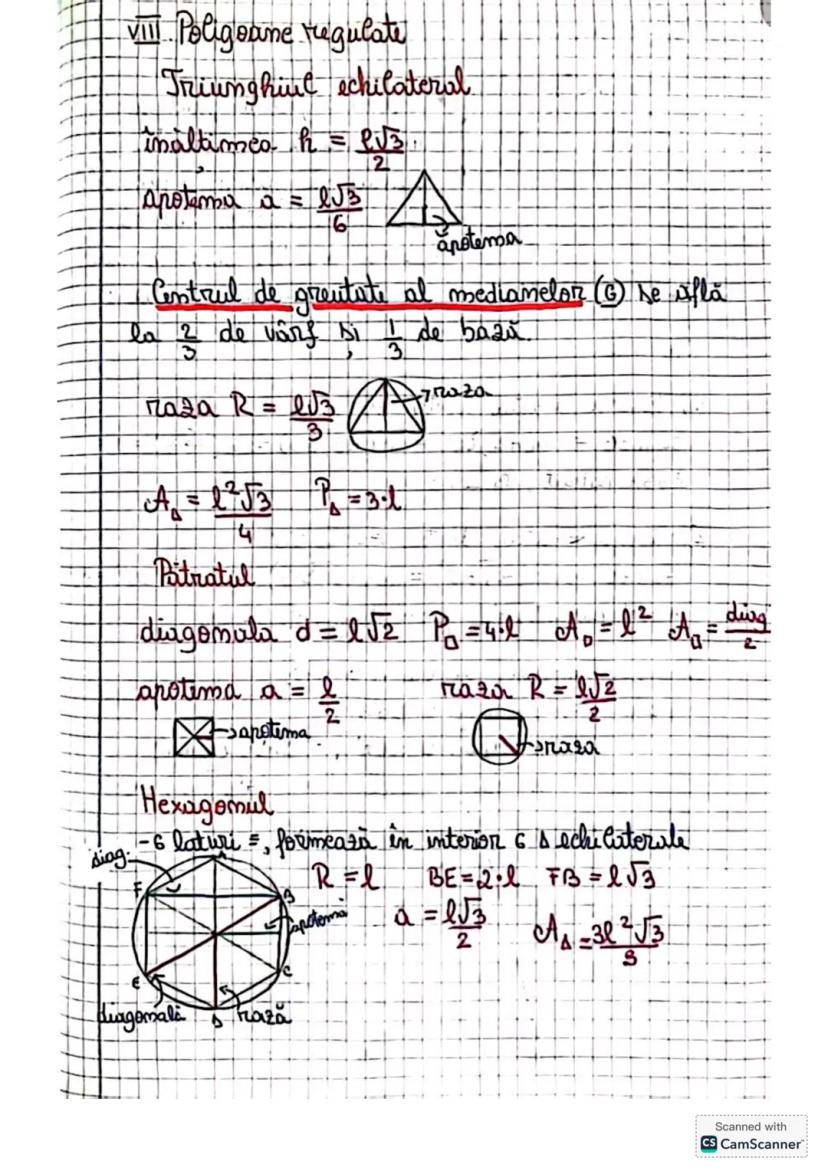 VIII. Poligoane regulate
Triunghiul echilateral
înălțimea h = l√3/2
apotema a = l√3/6
apotema
Centrul de greutate al medianelor (G) se află
la 2/3 de vârf și 1/3 de bază.
raza R = l√3/3
raza
A△ = l²√3/4 P△ = 3·l
Pătratul
diagonala d = l√2 P□ = 4·l A□ = l² A□ = diag/2
apotema a = l/2 raza R = l√2/2
apotema
raza
Hexagonul
- 6 laturi ≡, formează în interior 6 △ echilaterale
diag.
R = l BE = 2·l FB = l√3
A
F
B
apotemă
a = l√3/2
E
C
diagonală
D
rază
Scanned with
CS CamScanner